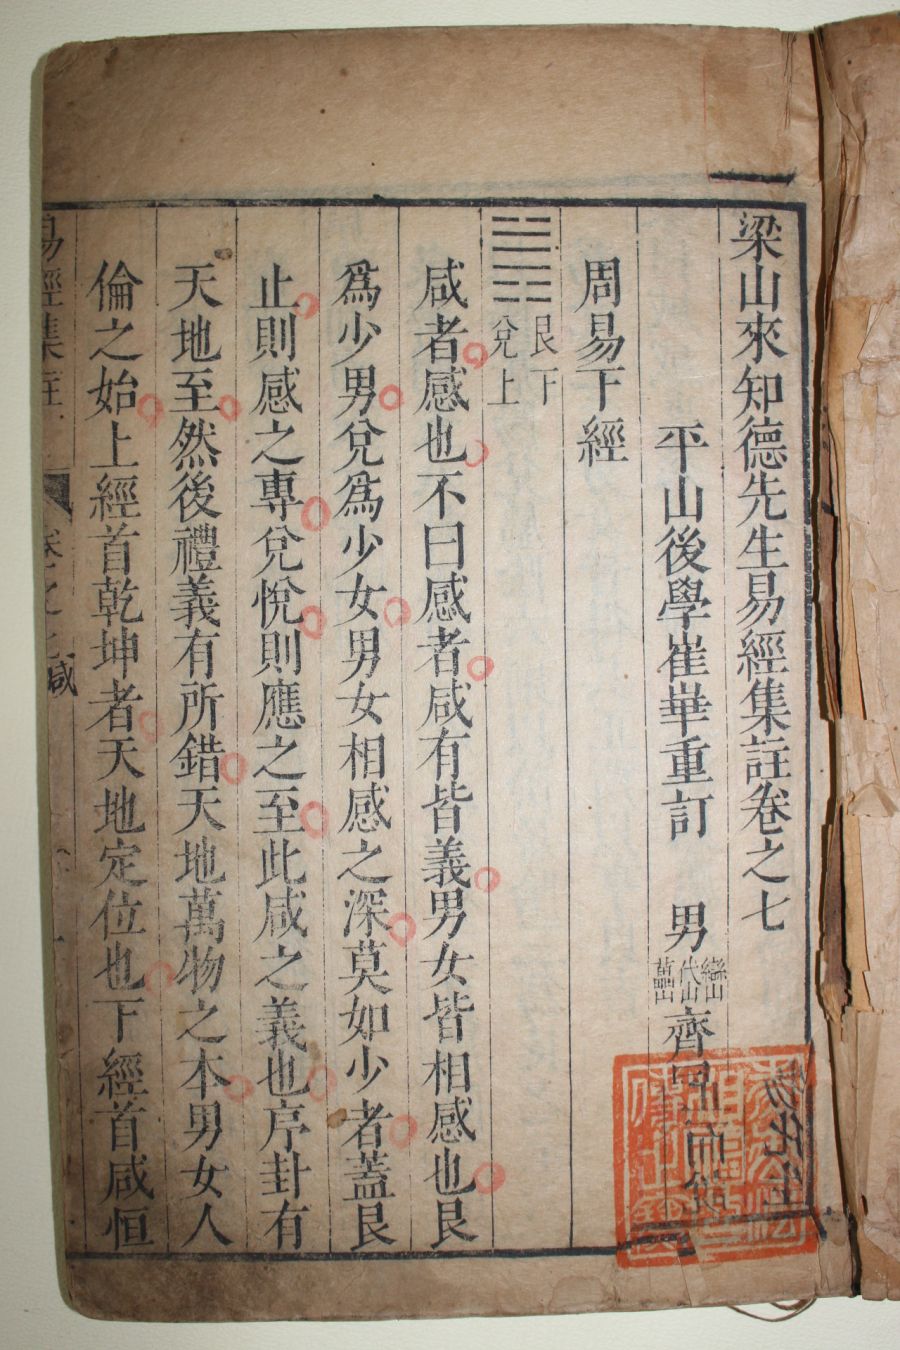 梁山來知德先生易經集註卷之七
平山後學崔華重訂 男 巒山 代山 蓲山 齊
周易下經
䷞ 艮下 兌上
咸者感也不曰感者咸有皆義男女皆相感也艮
爲少男兌爲少女男女相感之深莫如少者蓋艮
止則感之專兌悅則應之至此咸之義也序卦有
天地至然後禮義有所錯天地萬物之本男女人
倫之始上經首乾坤者天地定位也下經首咸恒
易經集註
卷之七咸